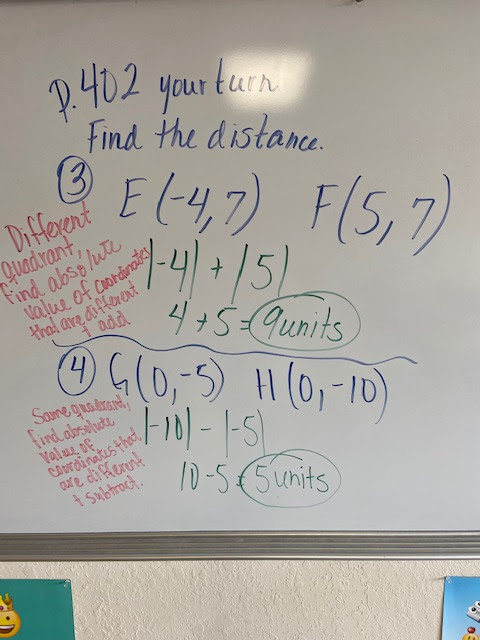 p.402 your turn
Find the distance.
③ E(-4,7) F(5,7)
Different
quadrant,
find absolute
value of coordinates
that are different
+ add
|-4| + |5|
4+5=9units
④ G(0,-5) H(0,-10)
Same quadrant,
find absolute
value of
coordinates that
are different
+ subtract.
|-10| - |-5|
10-5=5units